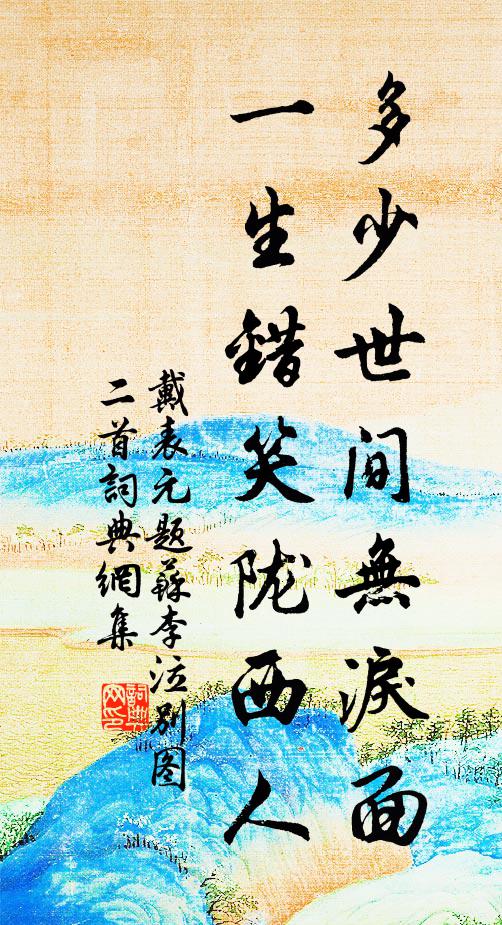 多少世間無淚面
一生錯笑陇西人
戴表元题蘇李泣别图
二首詞典網集
詞典网印